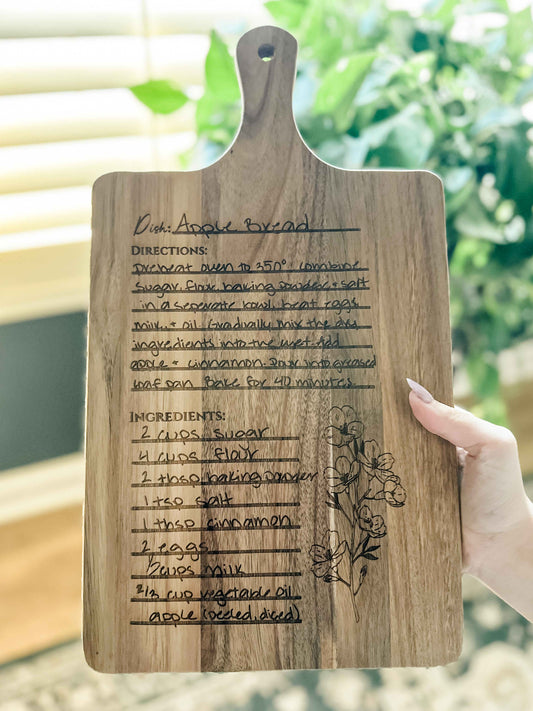 Dish: Apple Bread
DIRECTIONS:
preheat oven to 350°. combine
sugar, flour, baking powder + salt
in a seperate bowl, beat eggs
milk, + oil. Gradually mix the dry
ingredients into the wet. Add
apple + cinnamon. Pour into greased
loaf pan. Bake for 40 minutes.
INGREDIENTS:
2 cups sugar
4 cups flour
2 tbsp baking powder
1 tsp salt
1 tbsp cinnamon
2 eggs
1/2 cups milk
2/3 cup vegetable oil
apple (peeled, diced)